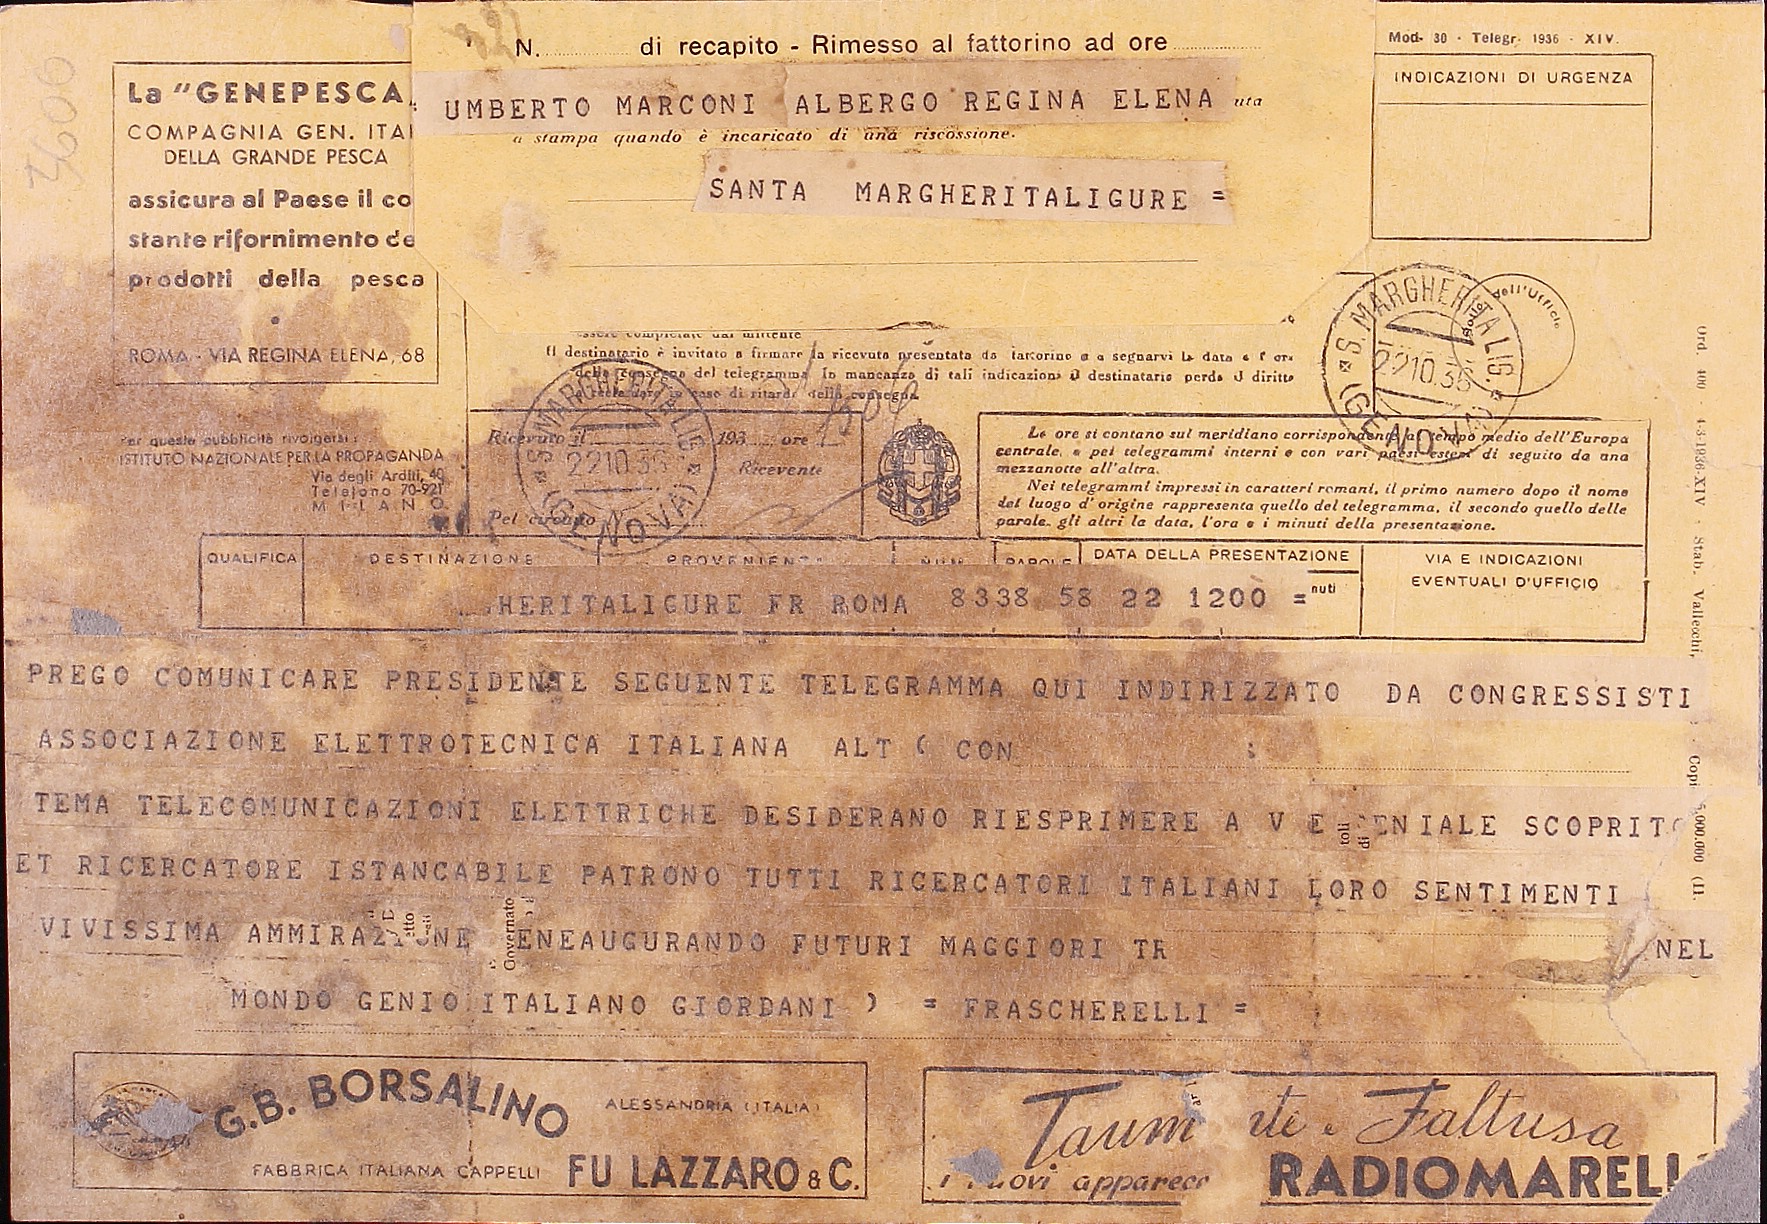 N. di recapito - Rimesso al fattorino ad ore
Mod. 30 - Telegr. 1936 - XIV.
INDICAZIONI DI URGENZA
La "GENEPESCA
COMPAGNIA GEN. ITA
DELLA GRANDE PESCA
assicura al Paese il co
stante rifornimento de
prodotti della pesca
ROMA - VIA REGINA ELENA, 68
UMBERTO MARCONI ALBERGO REGINA ELENA
a stampa quando è incaricato di una riscossione.
SANTA MARGHERITALIGURE =
essere completate dal mittente
Il destinatario è invitato a firmare la ricevuta presentata da fattorino e a segnarvi la data e l'ora
della consegna del telegramma In mancanza di tali indicazioni il destinatario perde il diritto
in caso di ritardi della consegna
S. MARGHERITA LIG.
22 10.36
(GENOVA)
Bollo dell'Ufficio
Per questa pubblicità rivolgersi:
ISTITUTO NAZIONALE PER LA PROPAGANDA
Via degli Arditi, 40
Telefono 70-921
MILANO
Ricevuto il 193 ore
Ricevente
Pel circuito
S. MARGHERITA LIG.
22 10.36
(GENOVA)
Le ore si contano sul meridiano corrispondente al tempo medio dell'Europa
centrale, e pei telegrammi interni e con vari paesi esteri di seguito da una
mezzanotte all'altra.
Nei telegrammi impressi in caratteri romani, il primo numero dopo il nome
del luogo d'origine rappresenta quello del telegramma, il secondo quello delle
parole, gli altri la data, l'ora e i minuti della presentazione.
QUALIFICA DESTINAZIONE PROVENIENZA NUM. PAROLE DATA DELLA PRESENTAZIONE VIA E INDICAZIONI
EVENTUALI D'UFFICIO
HERITALIGURE FR ROMA 8338 58 22 1200 = nuti
PREGO COMUNICARE PRESIDENTE SEGUENTE TELEGRAMMA QUI INDIRIZZATO DA CONGRESSISTI
ASSOCIAZIONE ELETTROTECNICA ITALIANA ALT ( CON
TEMA TELECOMUNICAZIONI ELETTRICHE DESIDERANO RIESPRIMERE A V E ENIALE SCOPRITO
ET RICERCATORE ISTANCABILE PATRONO TUTTI RICERCATORI ITALIANI LORO SENTIMENTI
VIVISSIMA AMMIRAZIONE ENEAUGURANDO FUTURI MAGGIORI TR NEL
MONDO GENIO ITALIANO GIORDANI ) = FRASCHERELLI =
G.B. BORSALINO
ALESSANDRIA (ITALIA)
FABBRICA ITALIANA CAPPELLI FU LAZZARO & C.
Taum ite e Faltusa
i nuovi apparecc
RADIOMARELL
Ord. 100 - 4-3-1936-XIV - Stab. Vallecchi, Copi 5.000.000 (11.